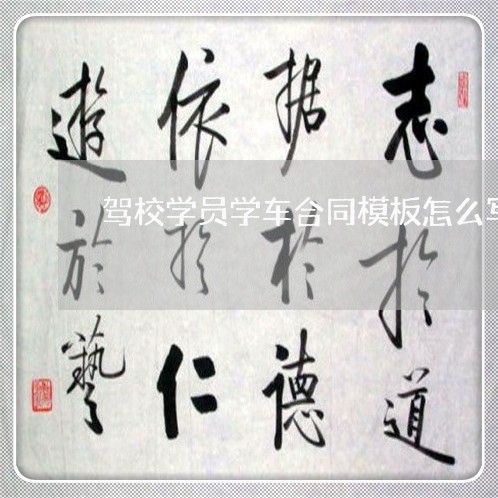 志於道
据於德
依於仁
遊於藝
驾校学员学车合同模板怎么写